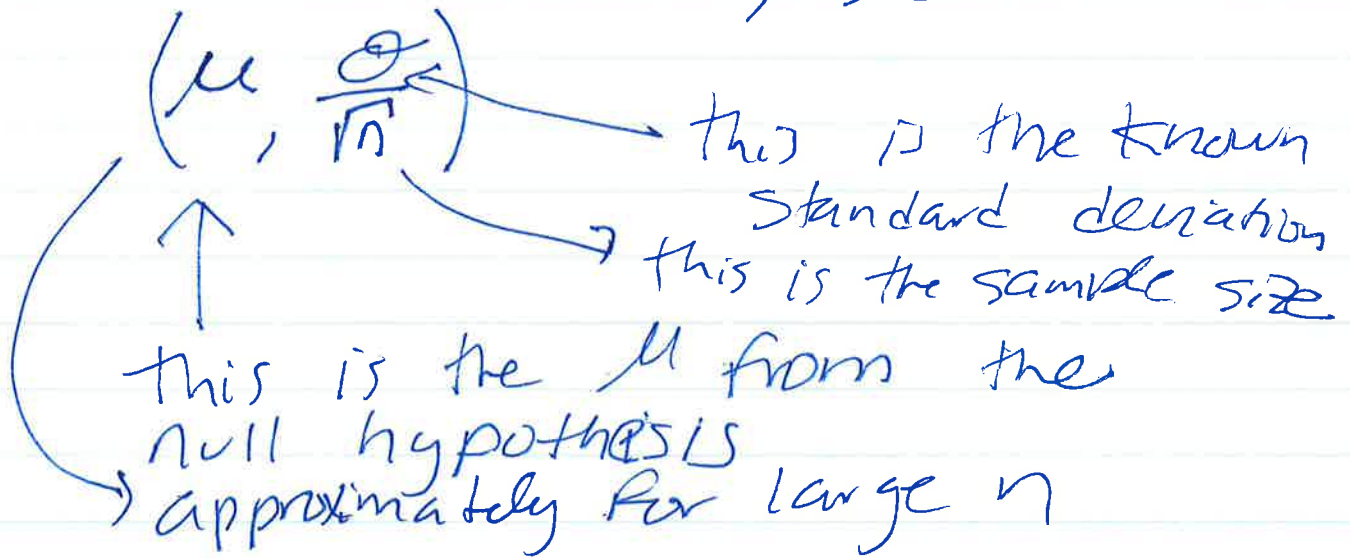 (μ, σ/√n)
this is the known
standard deviation
this is the sample size
this is the μ from the
null hypothesis
approximately for large n